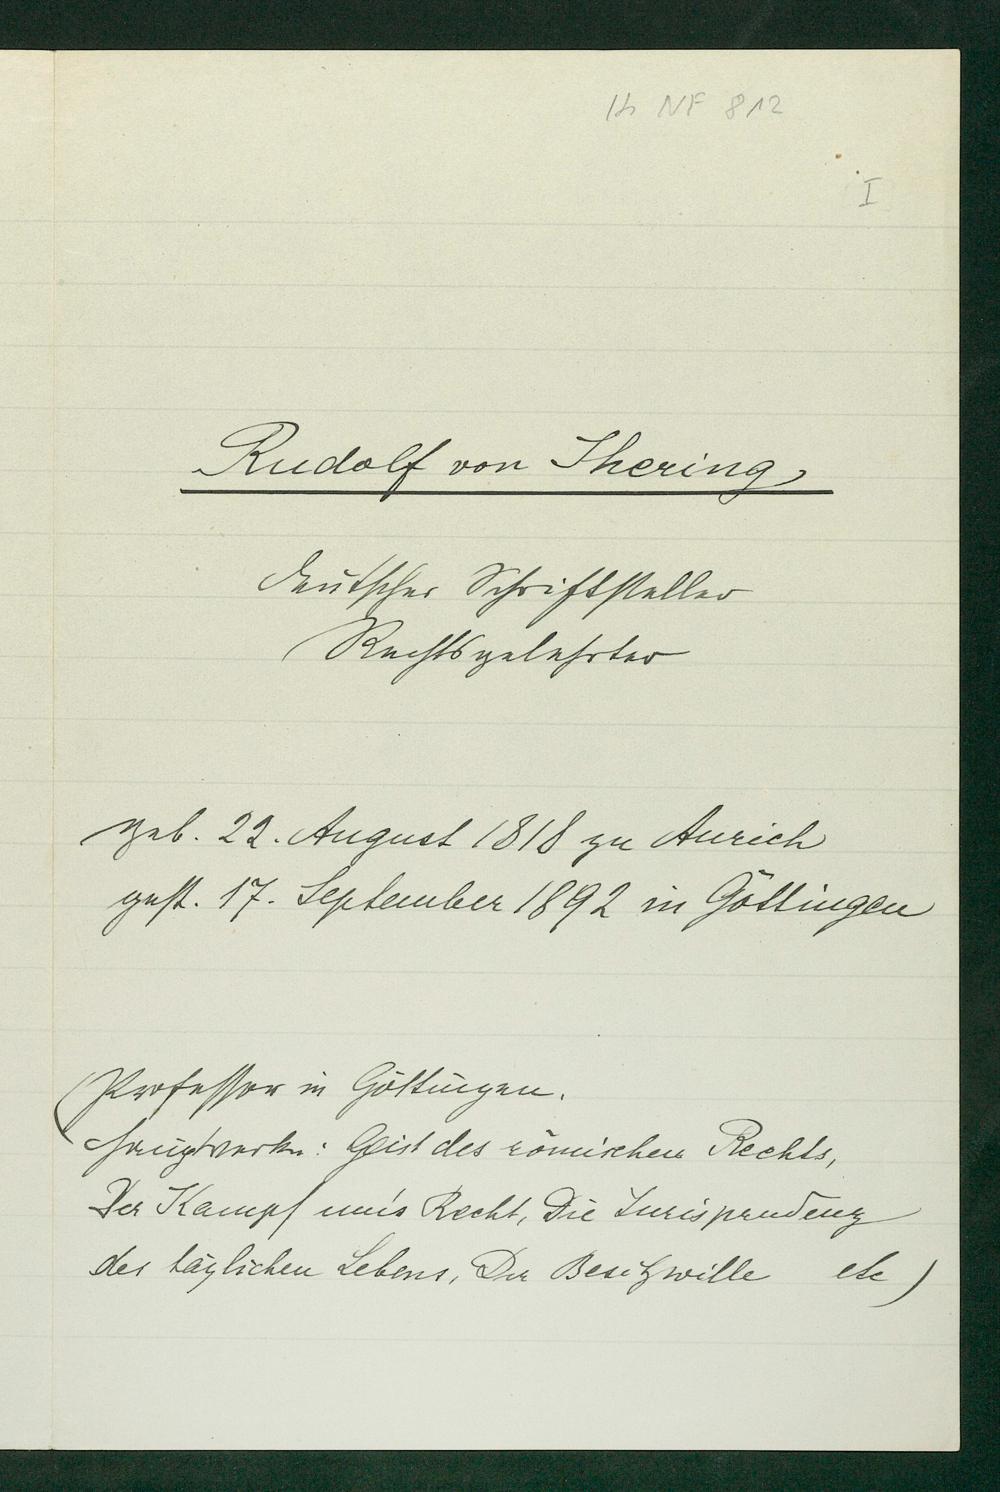 Ih NF 812
I
Rudolf von Ihering,
deutscher Schriftsteller
Rechtsgelehrter
geb. 22. August 1818 zu Aurich
gest. 17. September 1892 in Göttingen
(Professor in Göttingen.
Hauptwerke: Geist des römischen Rechts,
Der Kampf um's Recht, Die Jurisprudenz
des täglichen Lebens, Der Besitzwille etc)